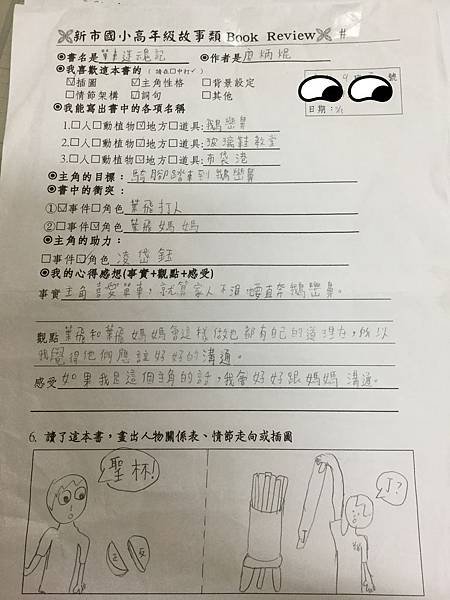 新市國小高年級故事類 Book Review #
◉書名是 單車迷魂記 ◉作者是 周炳焜
◉我喜歡這本書的（請在□中打✓） 號
☑插圖 ☑主角性格 □背景設定
□情節架構 ☑詞句 □其他
日期：
◉我能寫出書中的各項名稱
1.□人□動植物☑地方□道具:鵝鑾鼻
2.□人□動植物☑地方□道具:玻璃鞋教堂
3.□人□動植物☑地方□道具:布袋港
◉主角的目標：騎腳踏車到鵝鑾鼻
◉書中的衝突：
①☑事件□角色 葉飛打人
②□事件☑角色 葉飛媽媽
◉主角的助力：
□事件□角色 凌岱鈺
◉我的心得感想(事實+觀點+感受)
事實 主角喜愛單車，就算家人不准，他要直奔鵝鑾鼻。
觀點 葉飛和葉飛媽媽會這樣做也都有自己的道理在，所以
我覺得他們應該好好的溝通。
感受 如果我是這個主角的話，我會好好跟媽媽溝通。
6. 讀了這本書，畫出人物關係表、情節走向或插圖
聖杯!